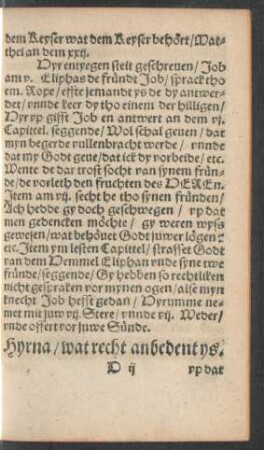 dem Keyser wat dem Keyser behört / Mat-
thei an dem xxij.
Hyr entyegen steit geschreuen / Job
am v. Eliphas de fründt Job / sprack tho
em. Rope / effte jemant ys de dy antwer-
det / vnnde keer dy tho einem der hilligen /
Hyr vp gifft Job en antwert an dem vj.
Capittel. seggende / Wol schal geuen / dat
myn begerde vullenbracht werde / vnnde
dat my Godt geue / dat ick dy vorbeide / etc.
Wente de dar trost socht van synem frün-
de / de vorleth den fruchten des HEREn.
Item am vij. secht he tho synen fründen /
Ach hedde gy doch geschwegen / vp dat
men gedencken möchte / gy weren wyss
gewesen / wat behöuet Godt juwer lögen
etc. Item ym lesten Capittel / straffet Godt
van dem Hemmel Eliphan vnde syne twe
fründe / seggende / Gy hebben so rechtliken
nicht gespraken vor mynen ogen / alse myn
knecht Job hefft gedan / Hyrumme ne-
met mit juw vij. Stere / vnnde vij. Weder /
vnde offert vor juwe Sünde.
Hyrna / wat recht anbedent ys.
D ij
vp dat